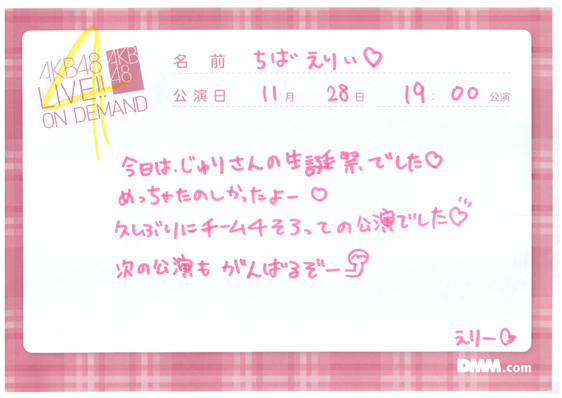 AKB48
LIVE!!
ON DEMAND
AKB
48
4
名 前 ちば えりぃ♡
公演日 11月 28日 19:00 公演
今日は、じゅりさんの生誕祭でした♡
めっちゃたのしかったよー ♡
久しぶりにチーム4そろっての公演でした♡
次の公演も がんばるぞー
えりー
DMM.com